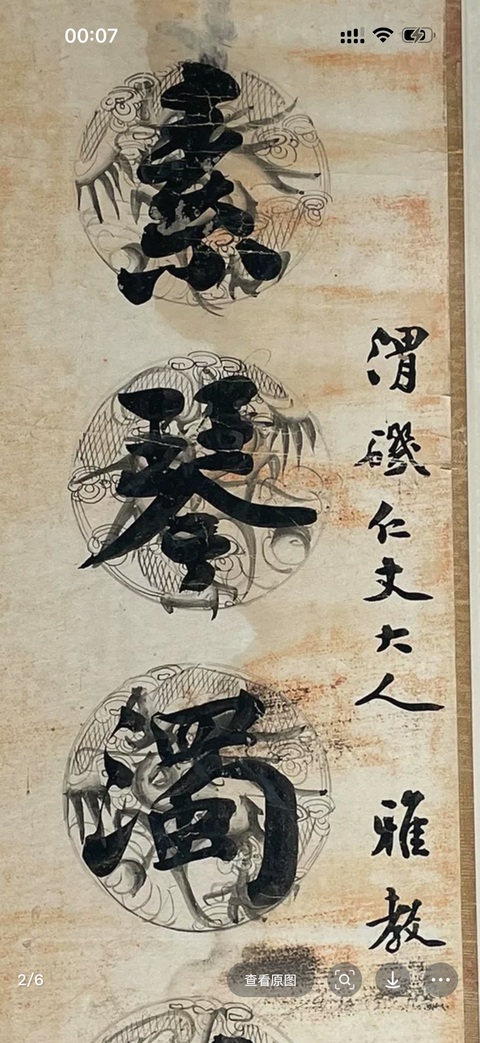 00:07
渭磯仁丈大人 雅教
素琴濁
2/6
查看原图